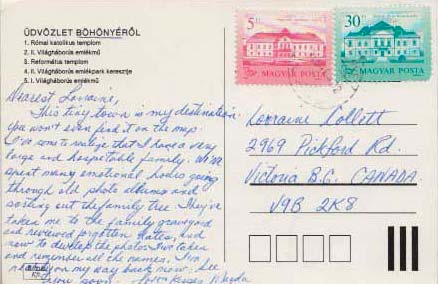 ÜDVÖZLET BÖHÖNYÉRŐL
1. Római katolikus templom
2. II. Világháborús emlékmű
3. Református templom
4. II. Világháborús emlékpark keresztje
5. I. Világháborús emlékmű
Dearest Lorraine,
This tiny town is my destination.
You won't even find it on the map.
I've come to realize that I have a very
large and hospitable family. We've
spent many emotional hours going
through old photo albums and
sorting out the family tree. They've
taken me to the family graveyard
and reviewed forgotten dates, and
now to develop the photos I've taken
and remember all the names. I'm
on my way back now. See
you soon. Love Magda
5 Ft
MAGYAR POSTA
30 Ft
MAGYAR POSTA
Lorraine Collett
2969 Pickford Rd.
Victoria B.C. CANADA.
V9B 2K8